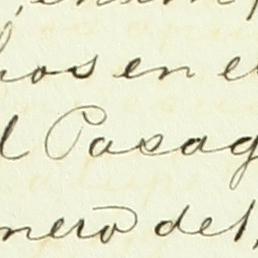 hos en e
l Pasag
nero del